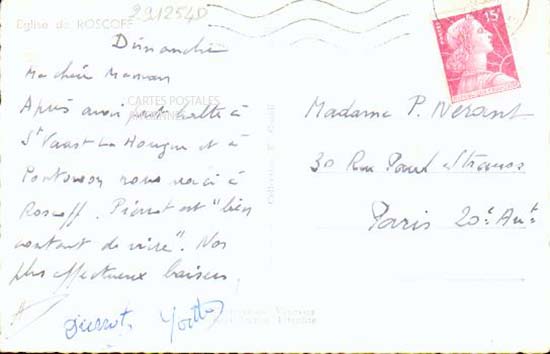 Eglise de ROSCOFF
291254D
Dimanche
Ma chère Maman
Après avoir fait halte à
St Vaast La Hougue et à
Pontorson nous voici à
Roscoff. Pierrot est "bien
content de vivre". Nos
plus affectueux baisers
Pierrot
CARTES POSTALES
15F
Madame P. Nerant
30 Rue Paul Strauss
Paris 20è Art